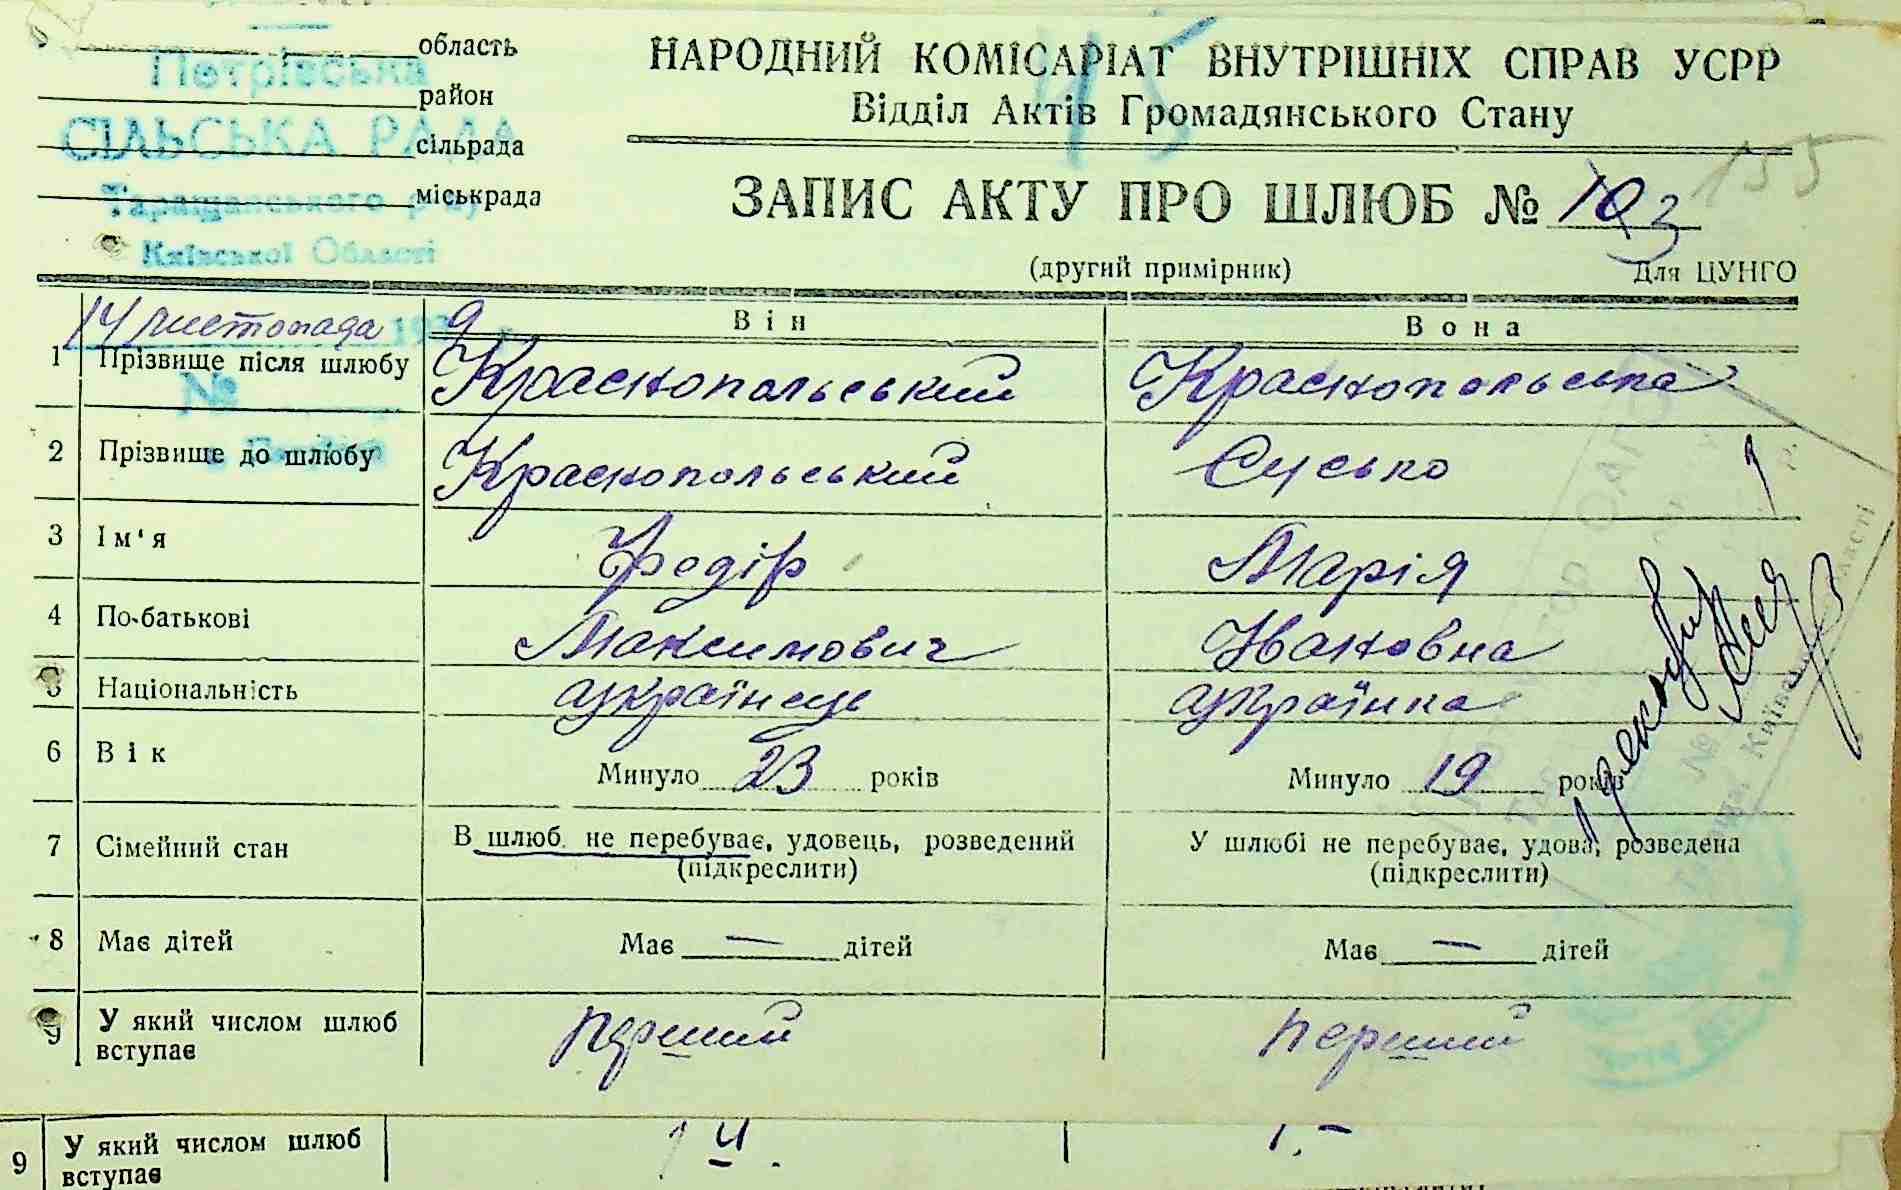 область
Петрівська
район
СІЛЬСЬКА РАДА
сільрада
Таращанського р-ну
міськрада
Київської Області
НАРОДНИЙ КОМІСАРІАТ ВНУТРІШНІХ СПРАВ УСРР
Відділ Актів Громадянського Стану
15
155
ЗАПИС АКТУ ПРО ШЛЮБ № 103
(другий примірник) Для ЦУНГО
14 листопада 1939
№
Він Вона
1 Прізвище після шлюбу Краснопольський Краснопольська
2 Прізвище до шлюбу Краснопольський Сусько
3 Ім'я Федір Марія
4 По-батькові Максимович Івановна
5 Національність українець українка
6 Вік Минуло 23 років Минуло 19 років
7 Сімейний стан В шлюб. не перебуває, удовець, розведений У шлюбі не перебуває, удова, розведена
(підкреслити) (підкреслити)
8 Має дітей Має — дітей Має — дітей
9 У який числом шлюб вступає перший перший
9 У який числом шлюб
вступає